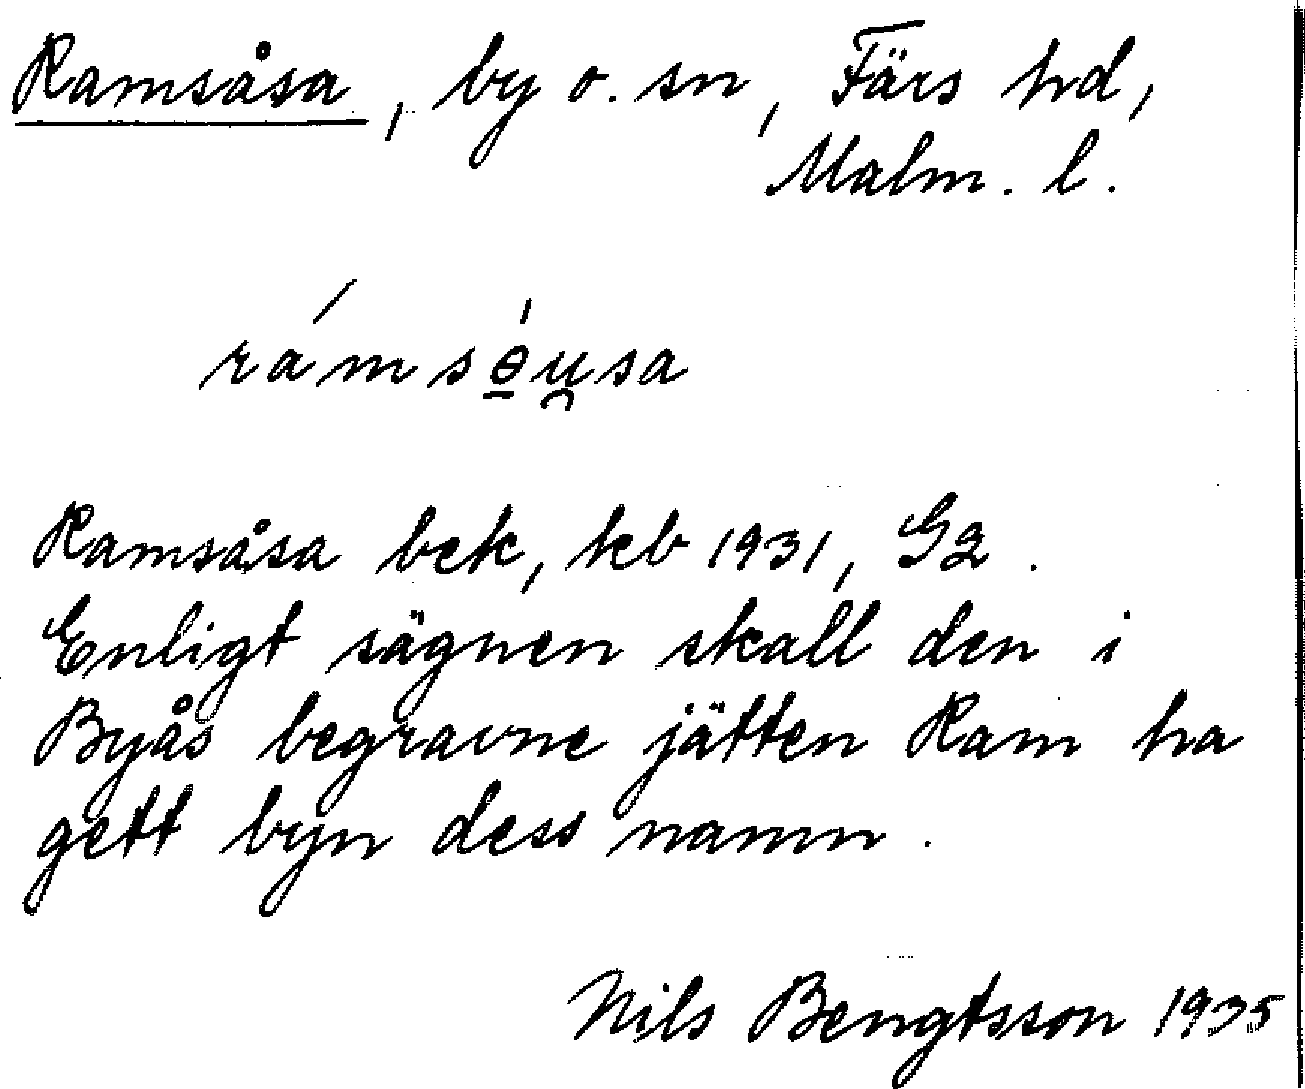 Ramsåsa, by o. sn, Färs hd,
Malm. l.
rámsө̱́u̯sa
Ramsåsa bek, keb 1931, G2.
Enligt sägnen skall den i
Byås begravne jätten Ram ha
gett byn dess namn.
Nils Bengtsson 1935